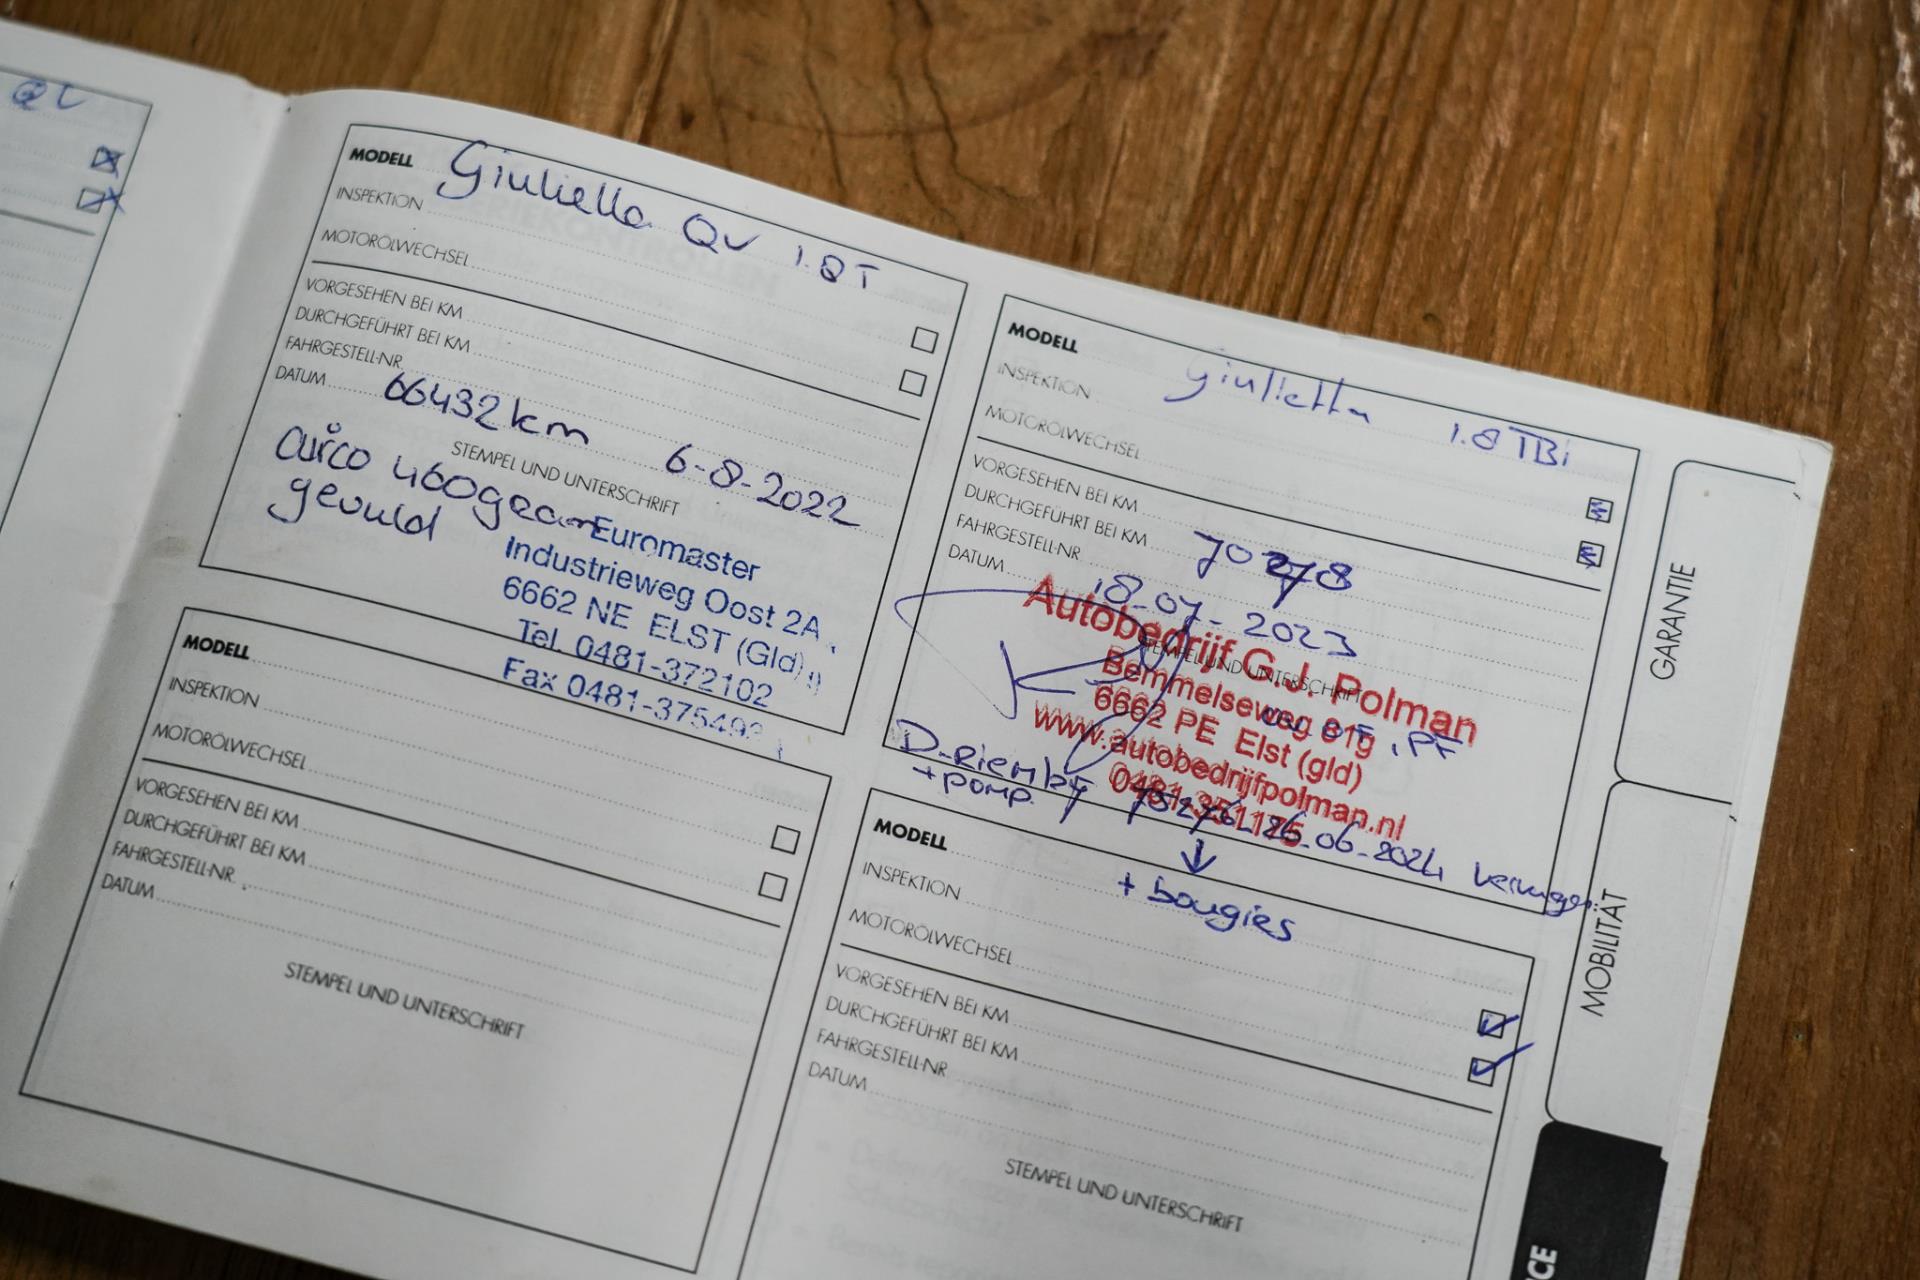 MODELL Giulietta QV 1.8T
INSPEKTION
MOTORÖLWECHSEL
VORGESEHEN BEI KM
DURCHGEFÜHRT BEI KM
FAHRGESTELL-NR.
DATUM 66432 km 6-8-2022
STEMPEL UND UNTERSCHRIFT
airco 460gram
gevuld
Euromaster
Industrieweg Oost 2A
6662 NE ELST (Gld)
Tel. 0481-372102
Fax 0481-375493
MODELL Giulietta 1.8 TBi
INSPEKTION
MOTORÖLWECHSEL
VORGESEHEN BEI KM
DURCHGEFÜHRT BEI KM 70278
FAHRGESTELL-NR.
DATUM 18-07-2023
STEMPEL UND UNTERSCHRIFT
Autobedrijf G.J. Polman
Bemmelseweg 81g
6662 PE Elst (gld)
www.autobedrijfpolman.nl
0481-351175
D-Riem
+ pomp 26-06-2024
+ bougies
MODELL
INSPEKTION
MOTORÖLWECHSEL
VORGESEHEN BEI KM
DURCHGEFÜHRT BEI KM
FAHRGESTELL-NR.
DATUM
STEMPEL UND UNTERSCHRIFT
MODELL
INSPEKTION
MOTORÖLWECHSEL
VORGESEHEN BEI KM
DURCHGEFÜHRT BEI KM
FAHRGESTELL-NR.
DATUM
STEMPEL UND UNTERSCHRIFT
GARANTIE
MOBILITÄT